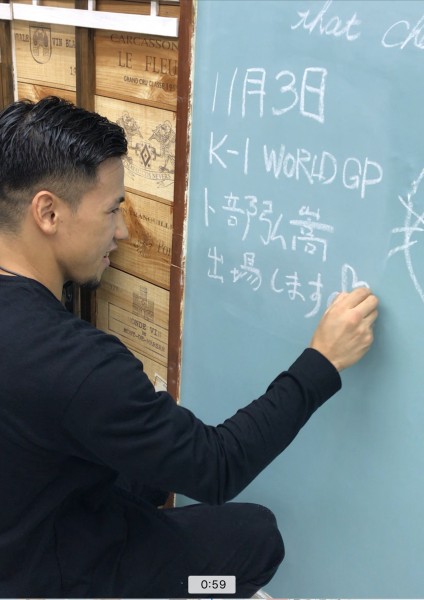 that
11月3日
K-1 WORLD GP
卜部弘嵩
出場します
VIN BLA
CARCASSONN
LE FLEU
GRAND CRU CLASSE
0:59